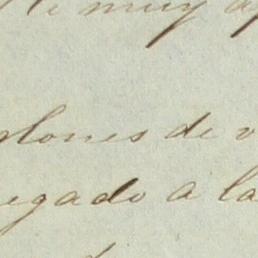 muy
lones de v
egado a la